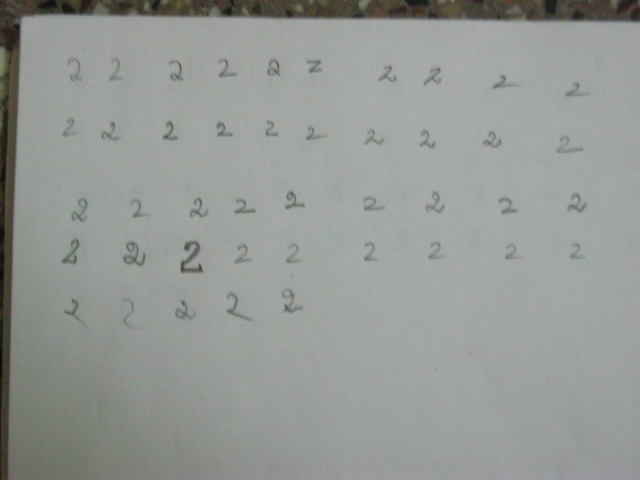 2 2 2 2 2 2 2 2 2 2
2 2 2 2 2 2 2 2 2 2
2 2 2 2 2 2 2 2 2
2 2 2 2 2 2 2 2 2
2 2 2 2 2